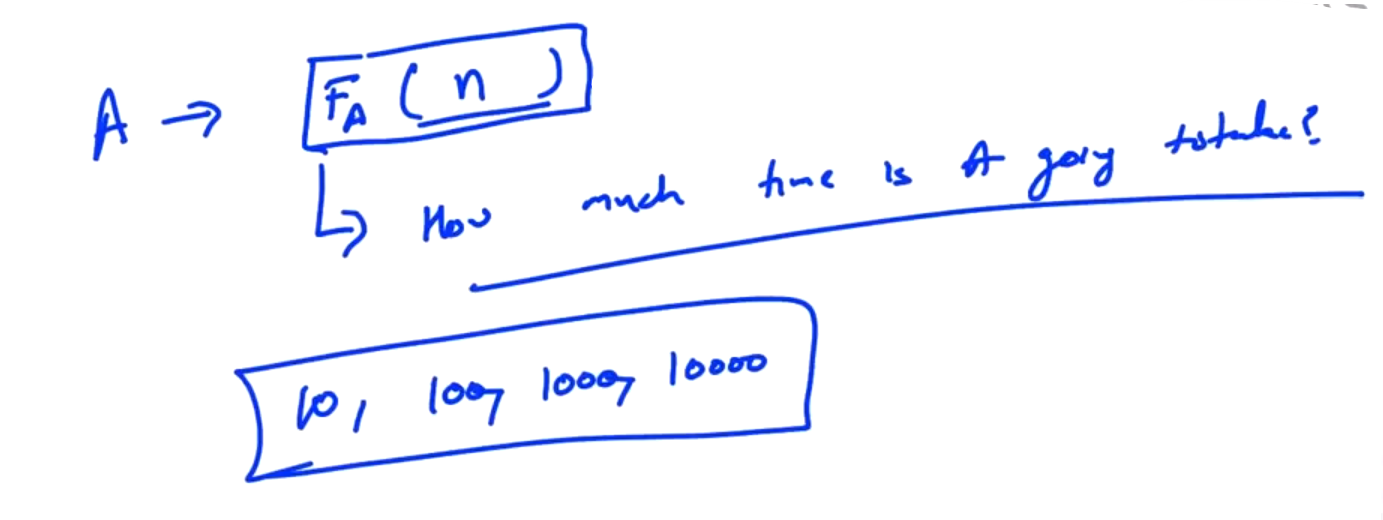 A → F_A (n)
↳ How much time is A going to take?
10, 100, 1000, 10000